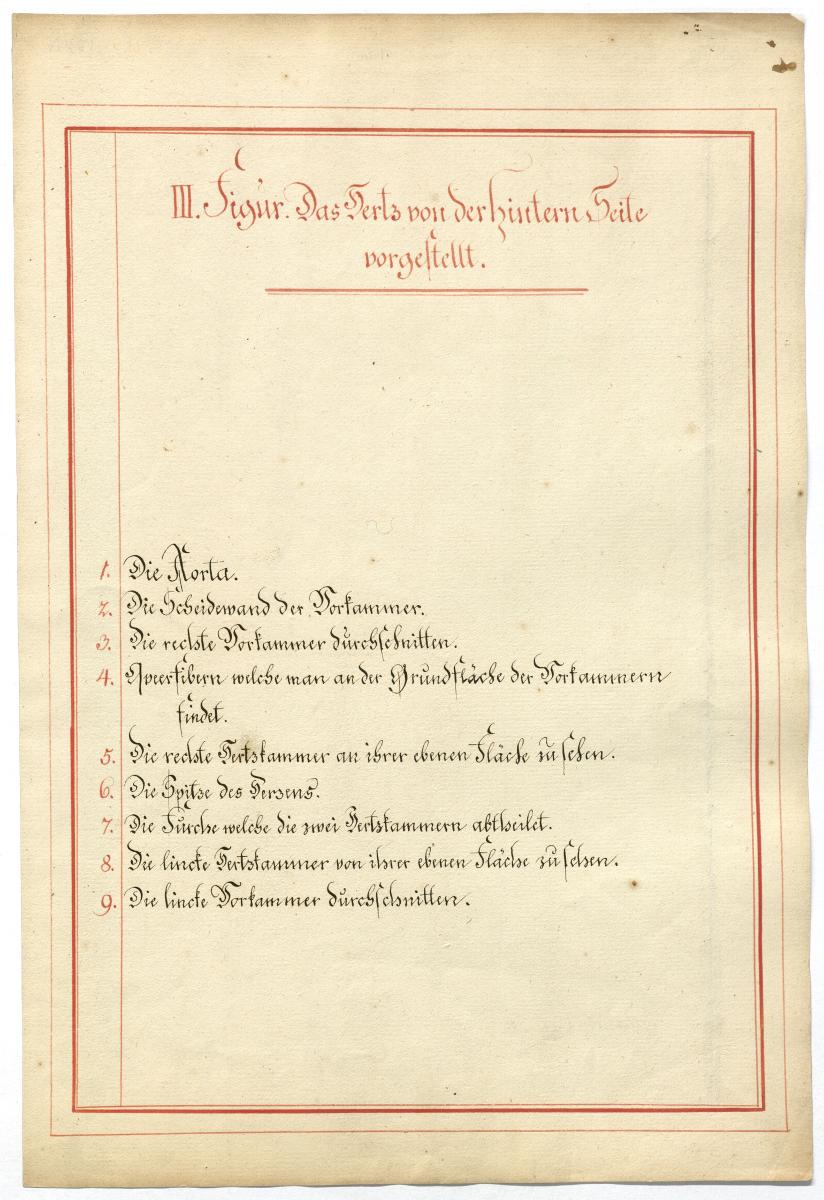 III. Figur. Das Hertz von der hintern Seite
vorgestellt.
1. Die Aorta.
2. Die Scheidewand der Vorkammer.
3. Die rechte Vorkammer durchschnitten.
4. Queerfibern welche man an der Grundfläche der Vorkammern
findet.
5. Die rechte Hertzkammer an ihrer ebenen Fläche zu sehen.
6. Die Spitze des Herzens.
7. Die Furche welche die zwei Hertzkammern abtheilet.
8. Die lincke Hertzkammer von ihrer ebenen Fläche zu sehen.
9. Die lincke Vorkammer durchschnitten.